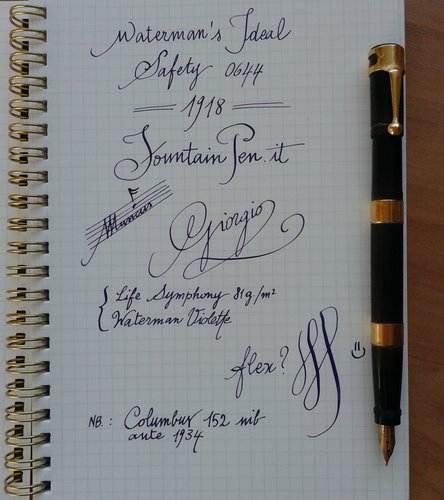 Waterman's Ideal
Safety 0644
1918
FountainPen.it
Musicus
Giorgio
Life Symphony 81g/m²
Waterman Violette
flex? fff
NB.: Columbus 152 nib
ante 1934